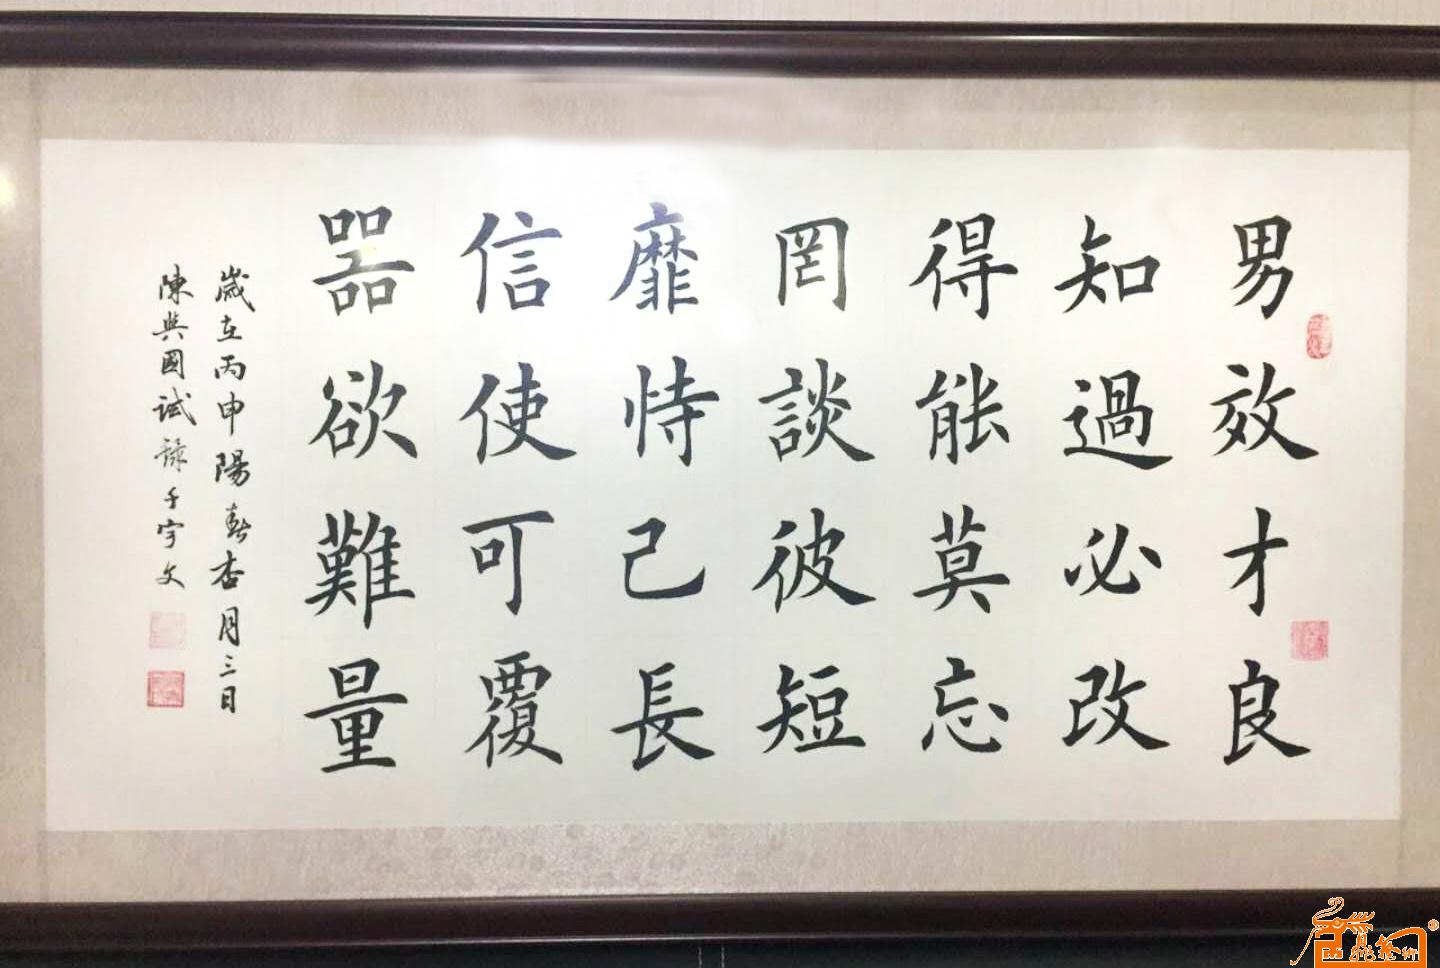 男效才良
知過必改
得能莫忘
罔談彼短
靡恃己長
信使可覆
器欲難量
歲在丙申陽春杏月三日
陳興國試錄千字文